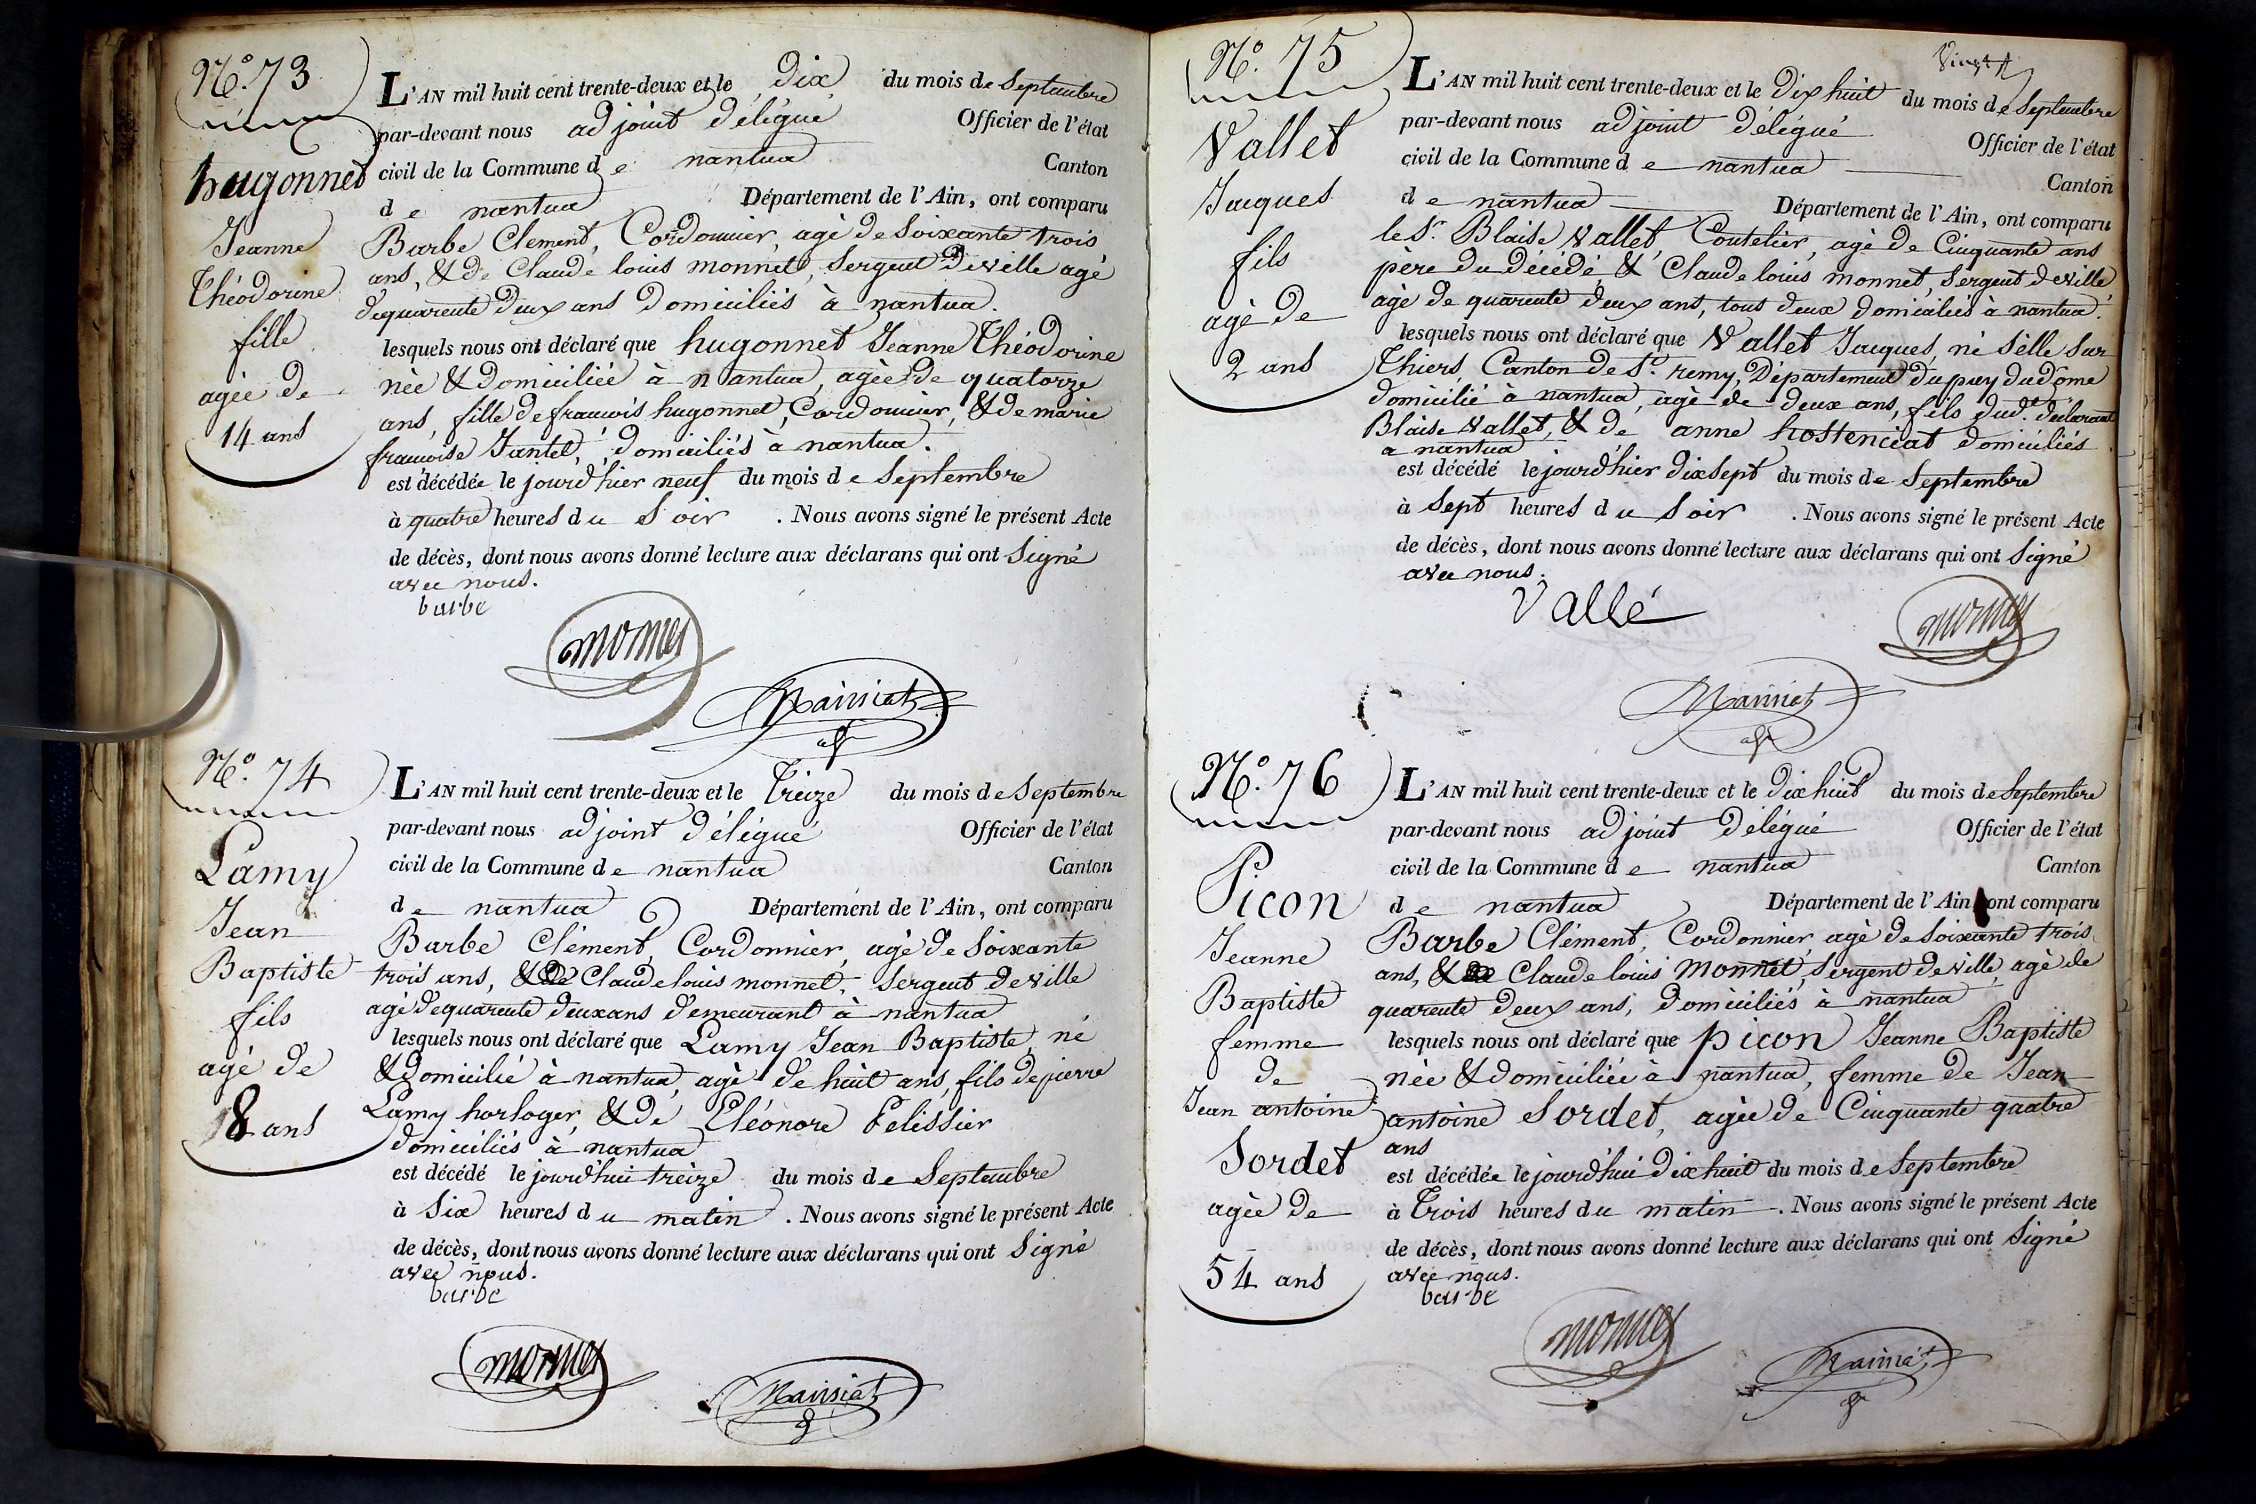 N.º 73
hugonnet
Jeanne
Théodorine
fille
agée de
14 ans
L'AN mil huit cent trente-deux et le Dix du mois de Septembre
par-devant nous adjoint Délégué Officier de l'état
civil de la Commune de nantua Canton
de nantua Département de l'Ain, ont comparu
Barbe Clement, Cordonnier, agé de Soixante trois
ans, & de Claude louis monnet, Sergent de ville agé
de quarente Deux ans Domiciliés à nantua.
lesquels nous ont déclaré que hugonnet Jeanne Théodorine
née & Domiciliée à nantua, agée de quatorze
ans, fille de francois hugonnet, Cordonnier, & de marie
francoise Jantet, Domiciliés à nantua.
est décédée le jourd'hier neuf du mois de Septembre
à quatre heures du Soir . Nous avons signé le présent Acte
de décès, dont nous avons donné lecture aux déclarans qui ont Signé
avec nous.
barbe
monnet
N.º 74
Lamy
Jean
Baptiste
fils
agé de
8 ans
L'AN mil huit cent trente-deux et le Treize du mois de Septembre
par-devant nous adjoint Délégué Officier de l'état
civil de la Commune de nantua Canton
de nantua Département de l'Ain, ont comparu
Barbe Clément, Cordonnier, agé de Soixante
trois ans, & Claude louis monnet, Sergent de ville
agé de quarente deux ans Demeurant à nantua
lesquels nous ont déclaré que Lamy Jean Baptiste, né
& Domicilié à nantua, agé de huit ans, fils de pierre
Lamy horloger, & de Eléonore Pelissier
Domiciliés à nantua
est décédé le jourd'hui treize du mois de Septembre
à Six heures du matin . Nous avons signé le présent Acte
de décès, dont nous avons donné lecture aux déclarans qui ont Signé
avec nous.
barbe
monnet
N.º 75
Vallet
Jacques
fils
agé de
2 ans
L'AN mil huit cent trente-deux et le Dix huit du mois de Septembre
par-devant nous adjoint Délégué Officier de l'état
civil de la Commune de nantua Canton
de nantua Département de l'Ain, ont comparu
le Sr. Blaise Vallet Coutelier, agé de Cinquante ans
père du décédé & Claude louis monnet, Sergent de ville
agé de quarente Deux ans, tous deux Domiciliés à nantua.
lesquels nous ont déclaré que Vallet Jacques, né Sèlle Sur
Thiers Canton de St. remy, Département du puy du Dome
domicilié à nantua, agé de deux ans, fils dud.t déclarant
Blaise Vallet, & de anne hostenciat Domiciliés
a nantua
est décédé le jourd'hier dix sept du mois de Septembre
à Sept heures du Soir . Nous avons signé le présent Acte
de décès, dont nous avons donné lecture aux déclarans qui ont Signé
avec nous.
Vallé
monnet
N.º 76
Picon
Jeanne
Baptiste
femme
de
Jean antoine
Sordet
agée de
54 ans
L'AN mil huit cent trente-deux et le Dix huit du mois de Septembre
par-devant nous adjoint Délégué Officier de l'état
civil de la Commune de nantua Canton
de nantua Département de l'Ain, ont comparu
Barbe Clément, Cordonnier, agé de Soixante trois
ans, & Claude louis Monnet, Sergent de ville, agé de
quarente Deux ans, Domiciliés à nantua
lesquels nous ont déclaré que picon Jeanne Baptiste
née & domiciliée à nantua, femme de Jean
antoine Sordet, agée de Cinquante quatre
ans
est décédée le jourd'hui Dix huit du mois de Septembre
à Trois heures du matin . Nous avons signé le présent Acte
de décès, dont nous avons donné lecture aux déclarans qui ont Signé
avec nous.
barbe
monnet